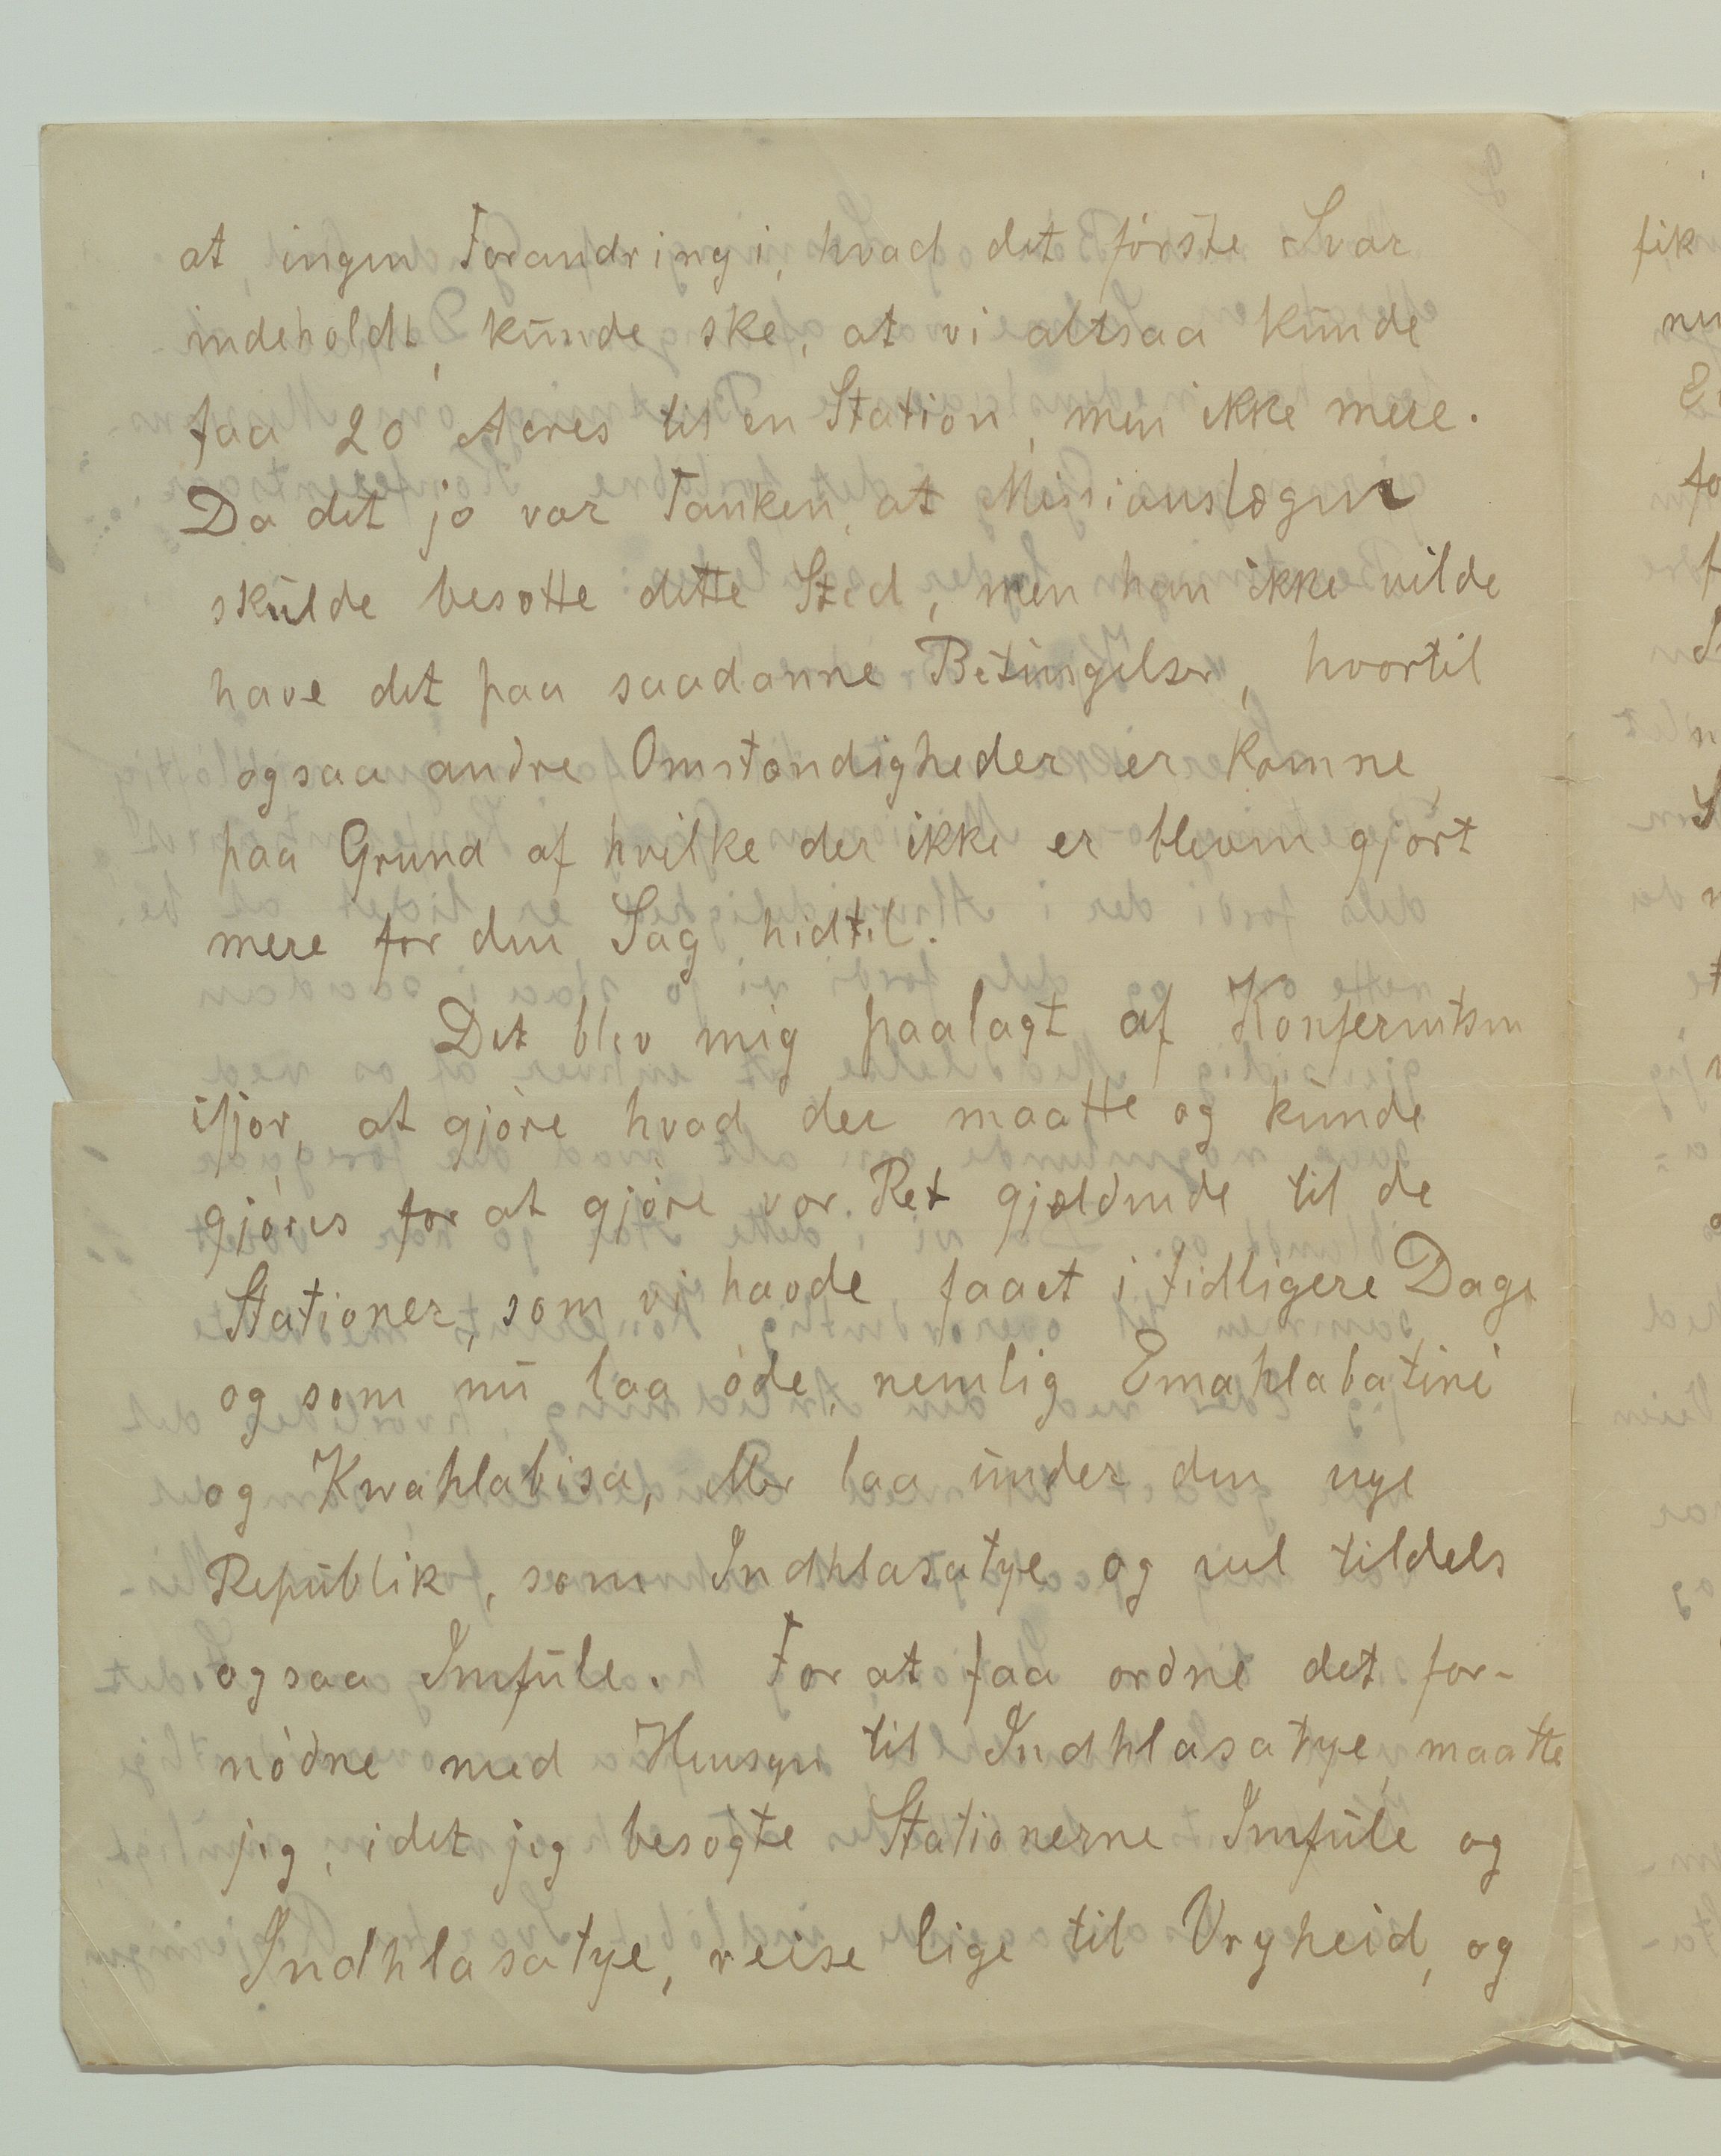 at ingen Forandring i, hvad det første Svar
indeholdt, kunde ske, at vi altsaa kunde
faa 20 Acres til en Station, men ikke mere.
Da det jo var Tanken, at Missionslægen
skulde besætte dette Sted, men han ikke vilde
have det paa saadanne Betingelser, hvortil
ogsaa andre Omstændigheder er komne,
paa Grund af hvilke der ikke er bleven gjort
mere for den Sag hidtil.
Det blev mig paalagt af Konferentsen
ifjor, at gjøre hvad der maatte og kunde
gjøres for at gjøre vor Ret gjældende til de
Stationer, som vi havde faaet i tidligere Dage
og som nu laa øde, nemlig Emahlabatini
og Kwahlabisa, eller laa under den nye
Republik, som Indhlasatye og vel tildels
ogsaa Imfule. For at faa ordne det for-
nødne med Hensyn til Indhlasatye, maatte
jeg, idet jeg besøgte Stationerne Imfule og
Indhlasatye, reise lige til Vryheid, og
fik